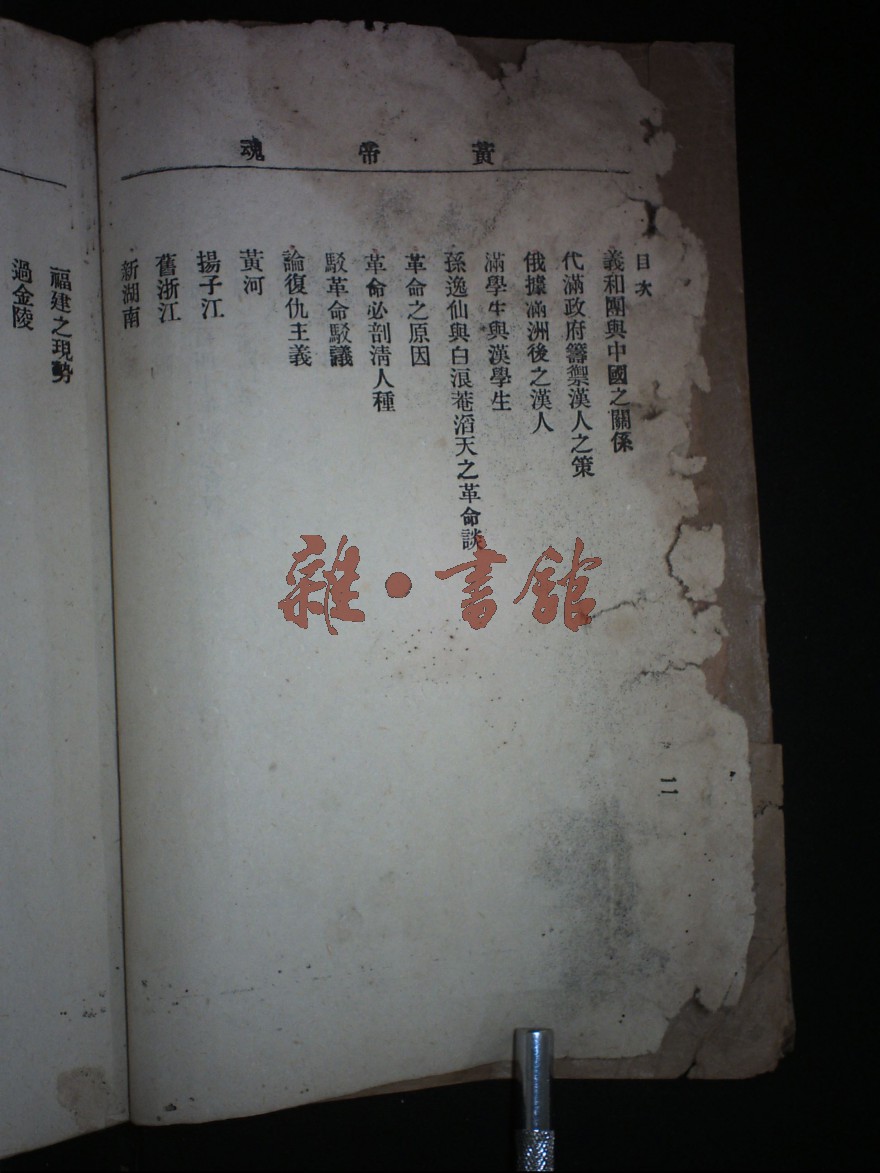 黃帝魂
目次
二
義和團與中國之關係
代滿政府籌禦漢人之策
俄據滿洲後之漢人
滿學生與漢學生
孫逸仙與白浪菴滔天之革命談
革命之原因
革命必剖清人種
駁革命駁議
論復仇主義
黃河
揚子江
舊浙江
新湖南
福建之現勢
過金陵
雜·書館